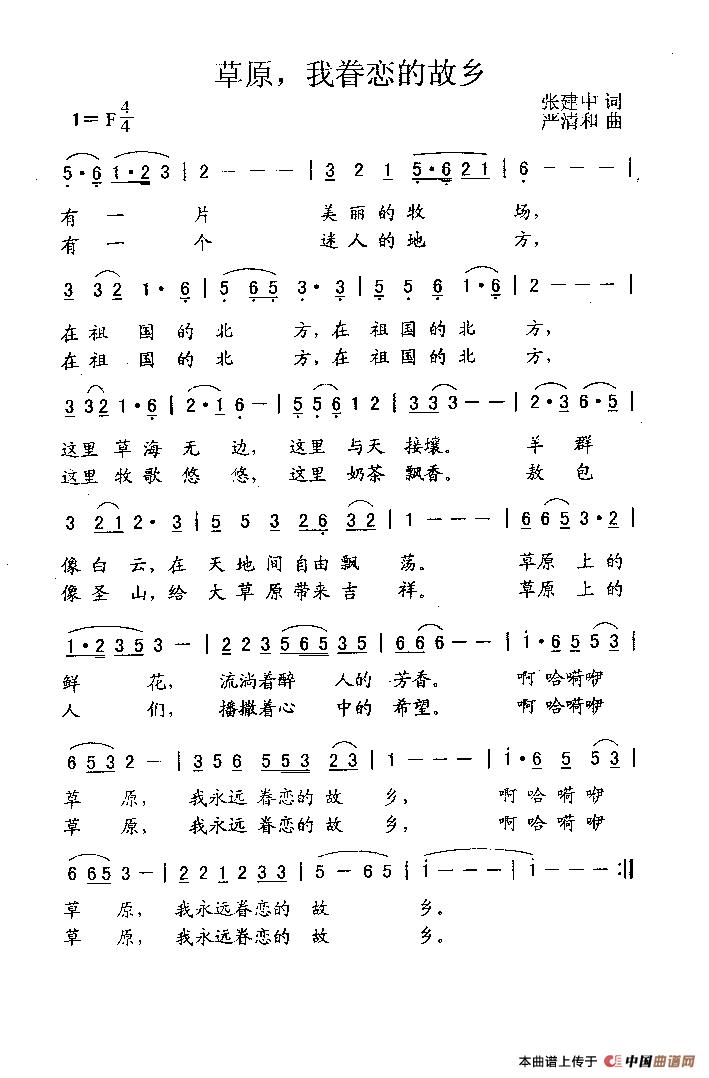 草原，我眷恋的故乡
1= F 4/4
张建中 词
严清和 曲
5·6 1·2 3 | 2 - - - | 3 2 1 5·6 2 1 | 6 - - - |
有一片美丽的牧场,
有一个迷人的地方,
3 3 2 1·6 | 5 6 5 3·3 | 5 5 6 1·6 | 2 - - - |
在祖国的北方,在祖国的北方,
在祖国的北方,在祖国的北方,
3 3 2 1·6 | 2·1 6 - | 5 5 6 1 2 | 3 3 3 - - | 2·3 6·5 |
这里草海无边, 这里与天接壤。 羊群
这里牧歌悠悠, 这里奶茶飘香。 敖包
3 2 1 2·3 | 5 5 3 2 6 3 2 | 1 - - - | 6 6 5 3·2 |
像白云,在天地间自由飘荡。 草原上的
像圣山,给大草原带来吉祥。 草原上的
1·2 3 5 3 - | 2 2 3 5 6 5 3 5 | 6 6 6 - - | 1·6 5 5 3 |
鲜花, 流淌着醉人的芳香。 啊哈嗬咿
人们, 播撒着心中的希望。 啊哈嗬咿
6 5 3 2 - | 3 5 6 5 5 3 2 3 | 1 - - - | 1·6 5 5 3 |
草原, 我永远眷恋的故乡, 啊哈嗬咿
草原, 我永远眷恋的故乡, 啊哈嗬咿
6 6 5 3 - | 2 2 1 2 3 3 | 5 - 6 5 | 1 - - - | 1 - - - :||
草原, 我永远眷恋的故乡。
草原, 我永远眷恋的故乡。
本曲谱上传于 中国曲谱网